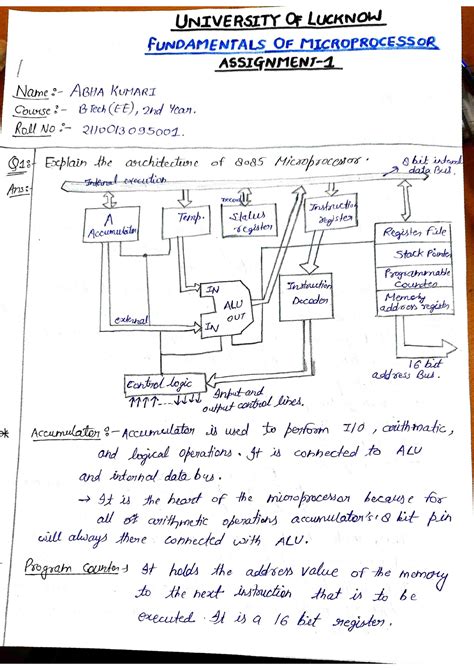 UNIVERSITY OF LUCKNOW
FUNDAMENTALS OF MICROPROCESSOR
ASSIGNMENT-1
Name :- ABHA KUMARI
Course :- B Tech (EE), 2nd Year.
Roll No :- 2110013095001.
Q1:- Explain the architecture of 8085 Microprocessor.
8 bit internal data Bus.
Ans:-
Internal execution
A Accumulator
Temp.
Status register
Instruction register
Register File
Stack Pointer
Programmable Counter
Memory address register
IN
ALU
OUT
IN
Instruction Decoder
external
16 bit address Bus.
Control logic
Input and output control lines.
* Accumulator :- Accumulator is used to perform I/O, arithmatic,
and logical operations. It is connected to ALU
and internal data bus.
→ It is the heart of the microprocessor because for
all of arithmetic operations accumulator's 8 bit pin
will always there connected with ALU.
Program Counter :- It holds the address value of the memory
to the next instruction that is to be
executed. It is a 16 bit register.